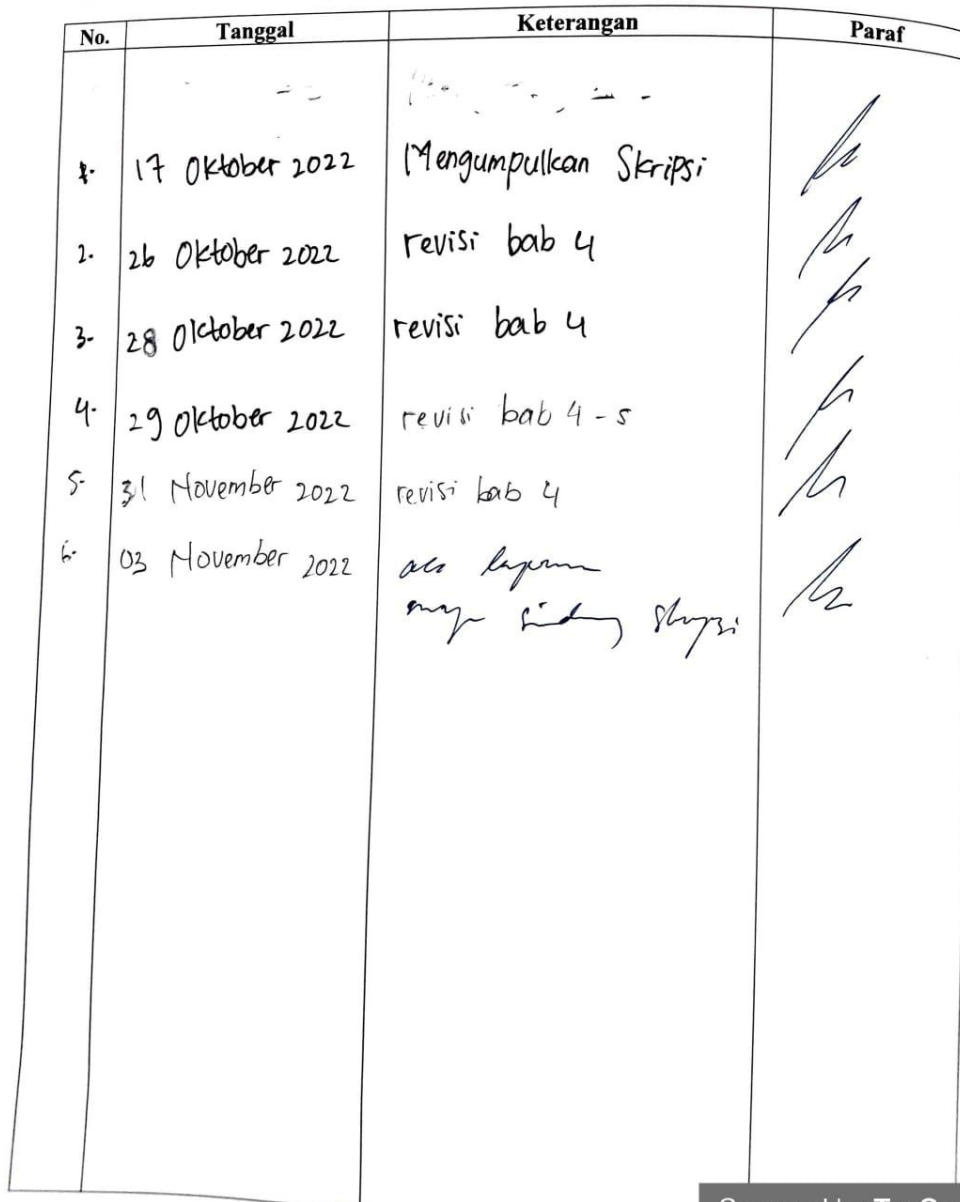 No. Tanggal Keterangan Paraf
1. 17 Oktober 2022 Mengumpulkan Skripsi
2. 26 Oktober 2022 revisi bab 4
3. 28 Oktober 2022 revisi bab 4
4. 29 Oktober 2022 revisi bab 4-5
5. 31 November 2022 revisi bab 4
6. 03 November 2022 acc laporan
maju sidang skripsi